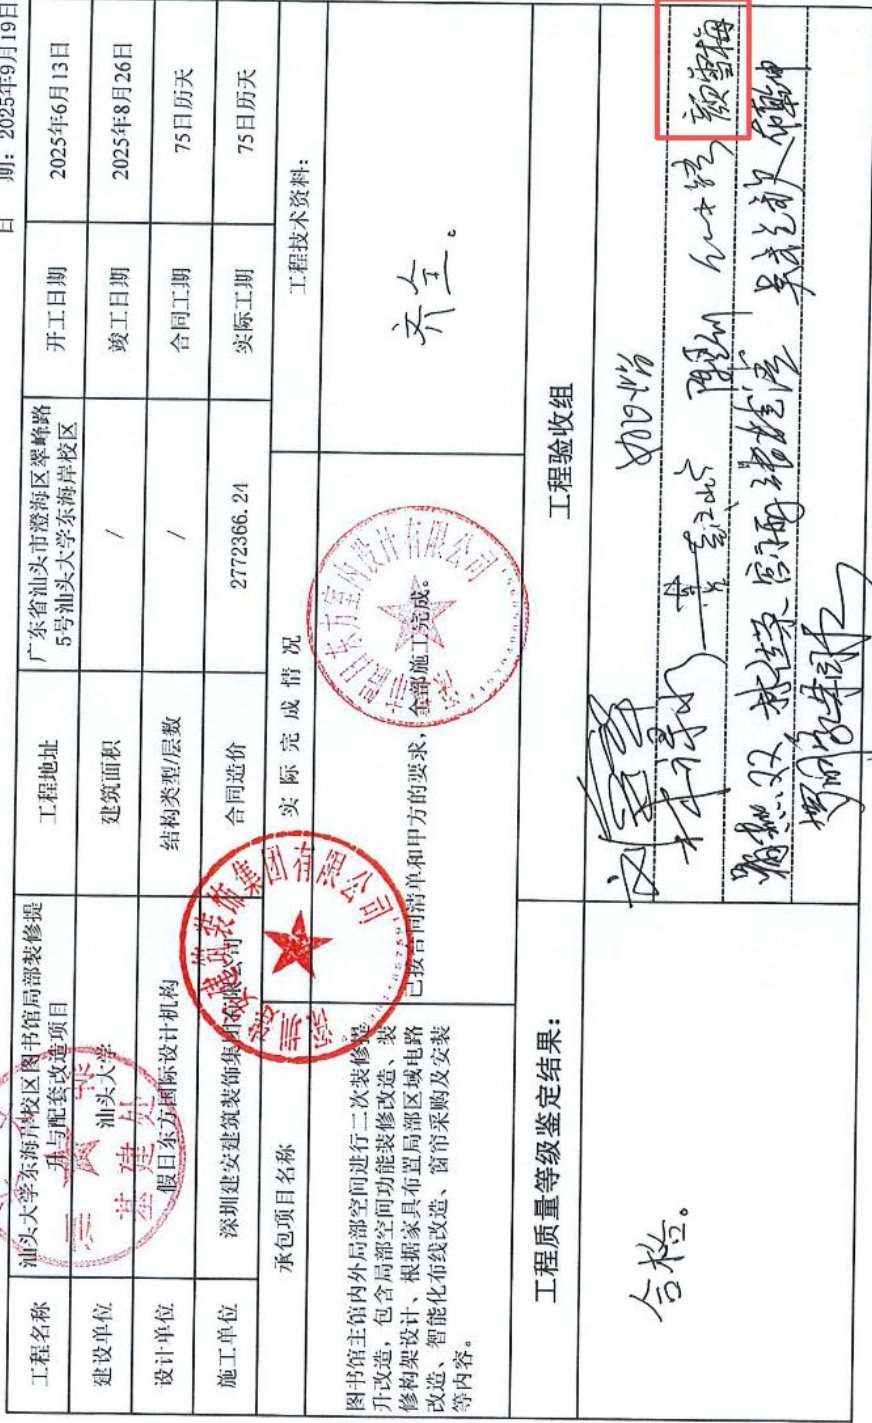 日 期：2025年9月19日
工程名称 汕头大学东海岸校区图书馆局部装修提升与配套改造项目 工程地址 广东省汕头市澄海区翠峰路5号汕头大学东海岸校区 开工日期 2025年6月13日
建设单位 汕头大学 建筑面积 / 竣工日期 2025年8月26日
设计单位 假日东方国际设计机构 结构类型/层数 / 合同工期 75日历天
施工单位 深圳建安建筑装饰集团有限公司 合同造价 2772366.24 实际工期 75日历天
承包项目名称 实际完成情况 工程技术资料：
图书馆主馆内外局部空间进行二次装修提
升改造，包含局部空间功能装修改造、装
修构架设计、根据家具布置局部区域电路
改造、智能化布线改造、窗帘采购及安装
等内容。
已按合同清单和甲方的要求，全部施工完成。
齐全。
工程质量等级鉴定结果： 工程验收组
合格。
颜雪梅
基建处
建筑装饰集团有限公司
假日东方室内设计有限公司